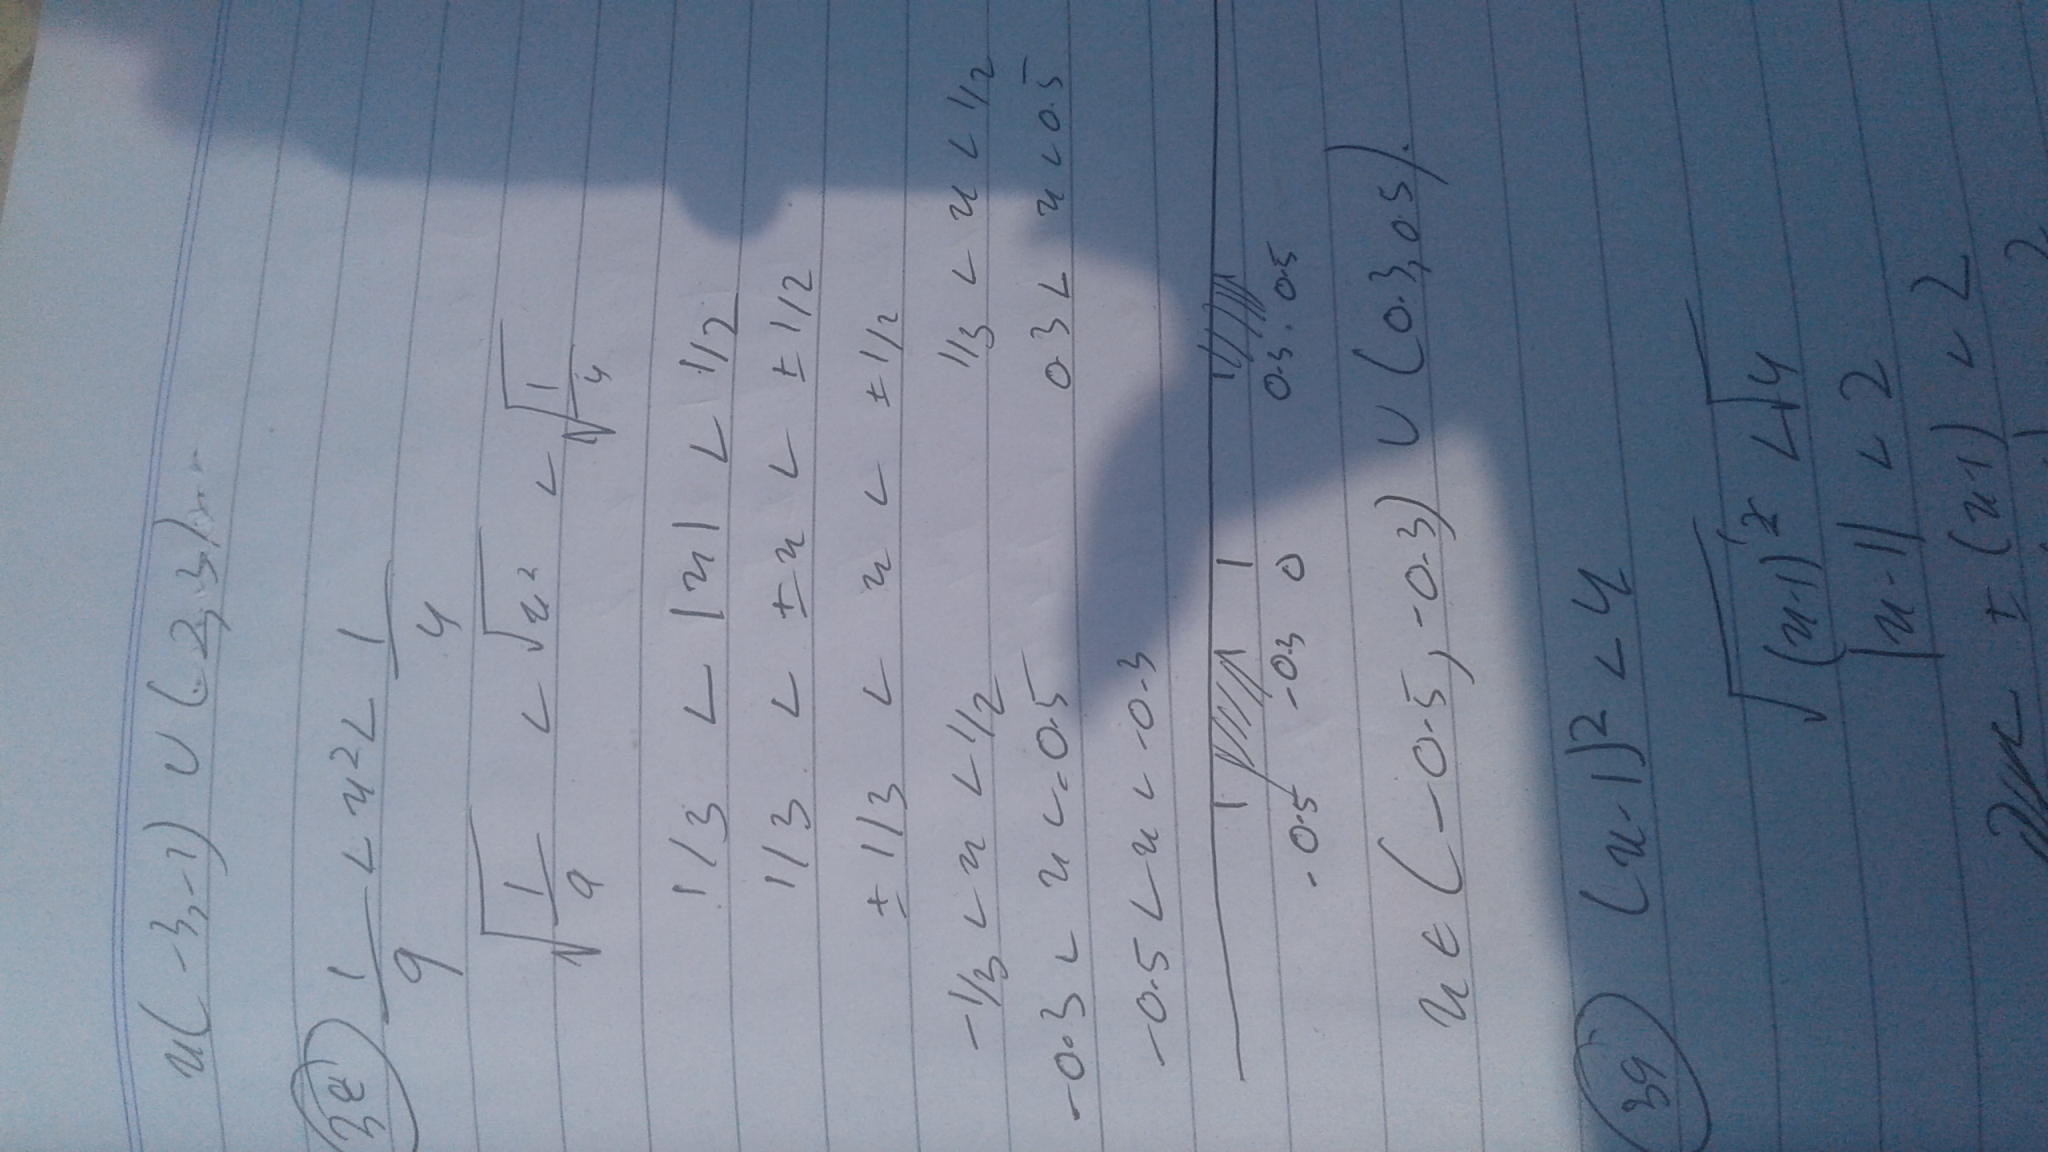 x(-3,-1) ∪ (2,3)
38 1/9 < x² < 1/4
√(1/9) < √x² < √(1/4)
1/3 < |x| < 1/2
1/3 < ±x < ±1/2
±1/3 < x < ±1/2
-1/3 < x < 1/2 1/3 < x < 1/2
-0.3 < x < -0.5 0.3 < x < 0.5
-0.5 < x < -0.3
-0.5 -0.3 0 0.3 0.5
x ∈ (-0.5, -0.3) ∪ (0.3, 0.5).
39 (x-1)² < 4
√(x-1)² < √4
|x-1| < 2
± (x-1) < 2
2